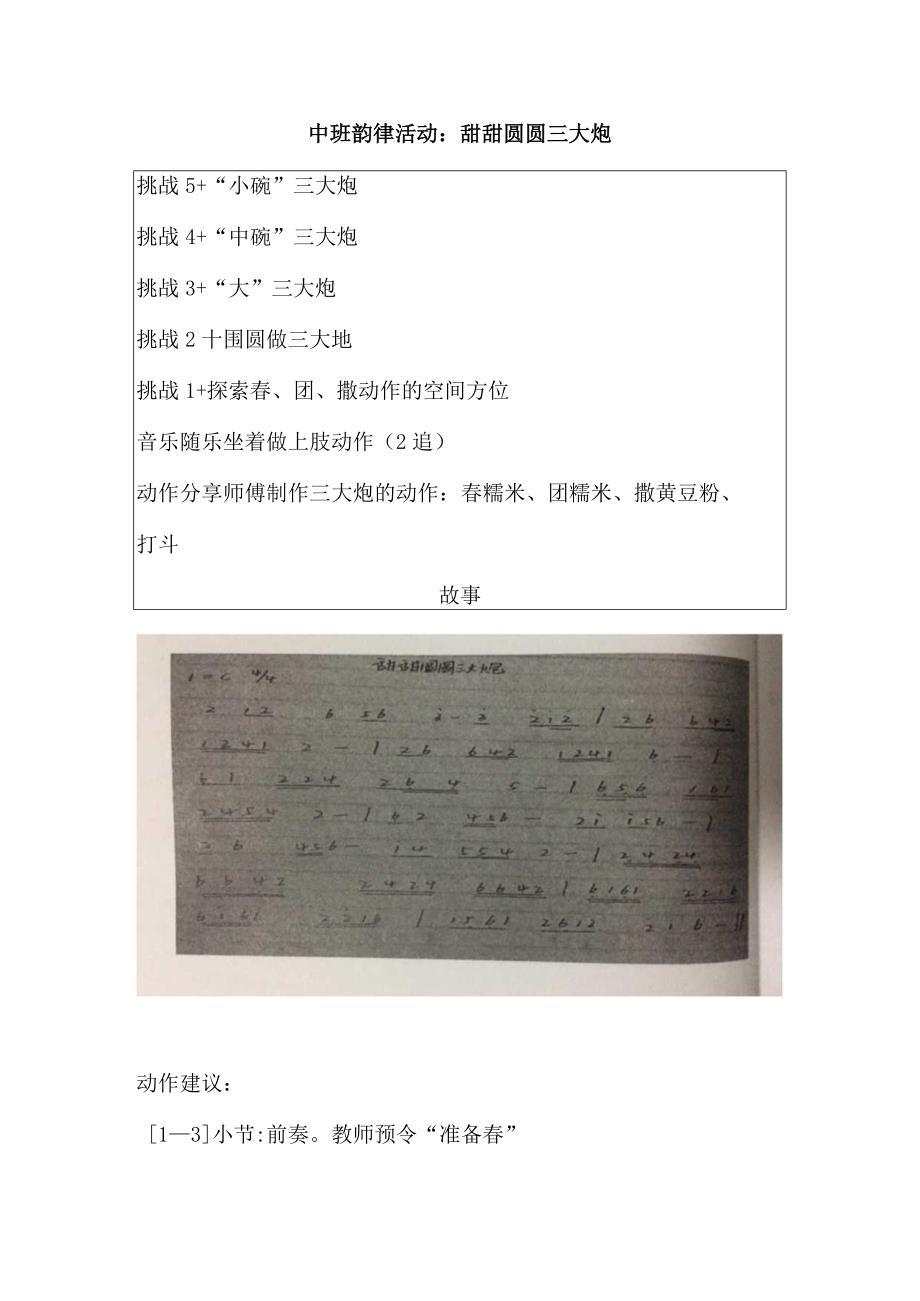 中班韵律活动：甜甜圆圆三大炮
挑战5+“小碗”三大炮
挑战4+“中碗”三大炮
挑战3+“大”三大炮
挑战2十围圆做三大地
挑战1+探索春、团、撒动作的空间方位
音乐随乐坐着做上肢动作（2追）
动作分享师傅制作三大炮的动作：春糯米、团糯米、撒黄豆粉、
打斗
故事
甜甜圆圆三大炮
1=C 4/4
2 12 6 56 i-2 2i2 | 26 642
1241 2 - | 26 642 1241 6 - |
61 224 26 4 5 - | 656 161
2454 2 - | 62 456 - 2i i56 - |
26 456 - i4 554 2 - | 24 24
6642 2424 6642 | 6161 2216
6i61 2216 | 1561 2612 2i6 - ||
动作建议：
[1—3]小节:前奏。教师预令“准备春”